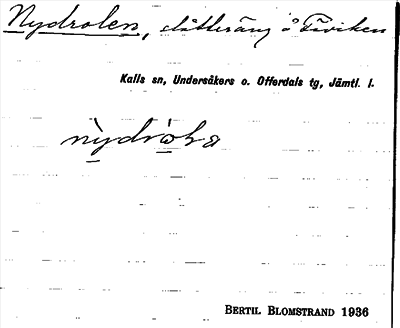 Nydrolen, slåtteräng å Täviken
Kalls sn, Undersåkers o. Offerdals tg, Jämtl. l.
BERTIL BLOMSTRAND 1936